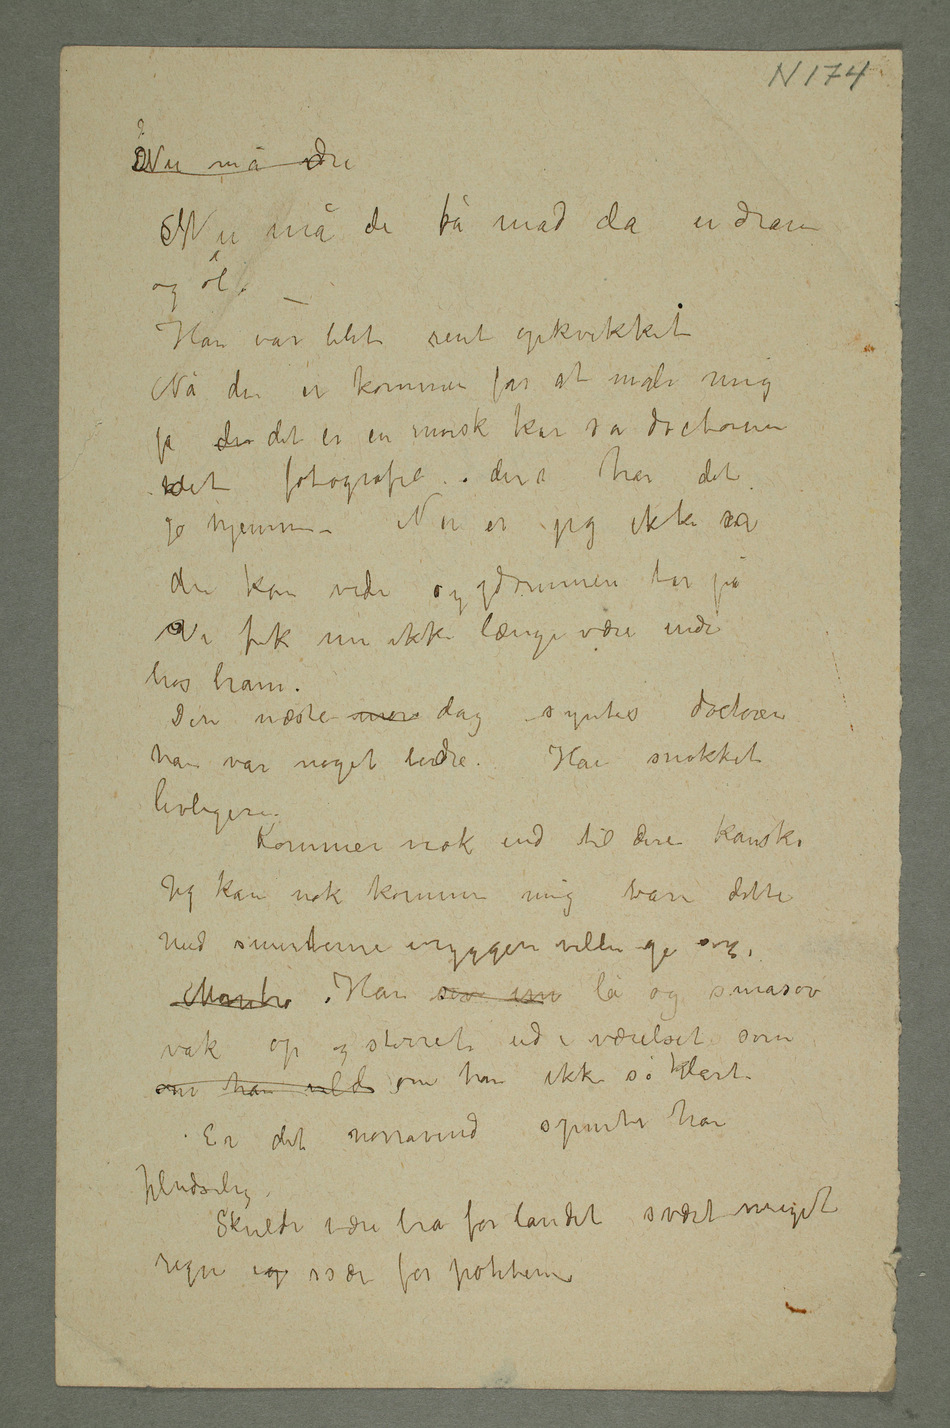 N 174
Nu må de
Nu må de få mad da en dram
og öl.
Han var blit rent opkvikket
Nå de er kommen for at male mig
ja det er en morsk kar sa doctoren
det fotografie. der har det
jo hjemme. Nu er jeg ikke
de kan vide sygdommen tar på
Vi fik nu ikke længe være inde
hos ham.
Den næste mor dag syntes doctoren
han var noget bedre. Han snakket
livligere.
Kommer nok ind til dere kanske
Jeg kan nok komme mig bare dette
med smerterne i ryggen ville gi sig.
Han sov lå og småsov
vak op og stirret ud i værelset som
om han vild om han ikke så klart
Er det norravind spurte han
pludselig.
Skulde være bra for landet svært meget
regn og især for potterne